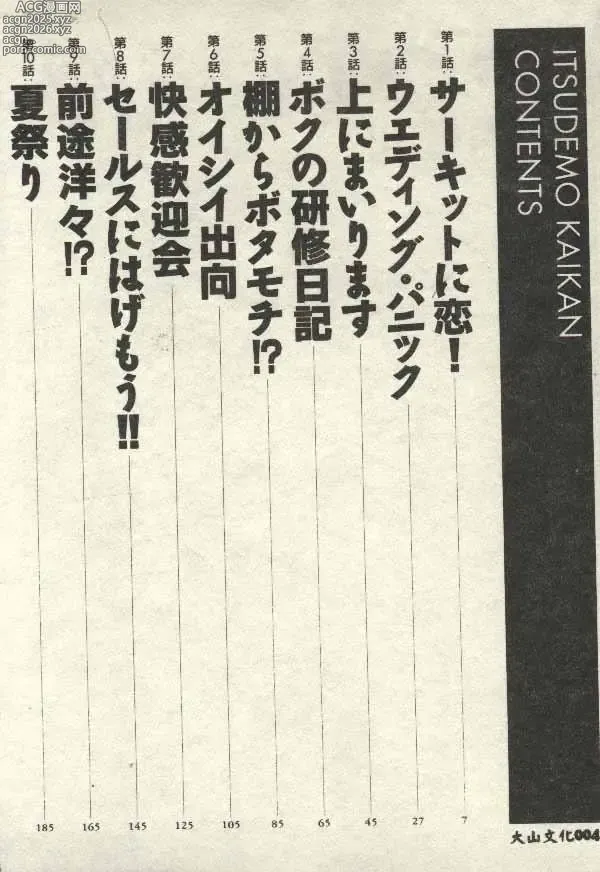 ACG漫画网
acgn2025.xyz
acgn2026.xyz
porn2comic.com
ITSUDEMO KAIKAN
CONTENTS
第1話:サーキットに恋! 7
第2話:ウエディング・パニック 27
第3話:上にまいります 45
第4話:ボクの研修日記 65
第5話:棚からボタモチ!? 85
第6話:オイシイ出向 105
第7話:快感歓迎会 125
第8話:セールスにはげもう!! 145
第9話:前途洋々!? 165
第10話:夏祭り 185
大山文化004